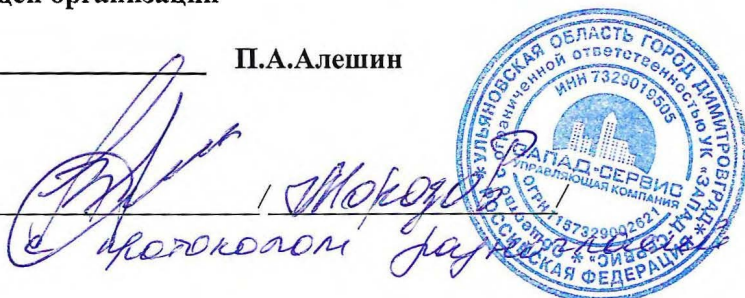 ей организации
П.А.Алешин
/ Морозов /
с протоколом разногласий
УЛЬЯНОВСКАЯ ОБЛАСТЬ ГОРОД ДИМИТРОВГРАД * РОССИЙСКАЯ ФЕДЕРАЦИЯ *
ограниченной ответственностью УК «ЗАПАД-СЕРВИС» * Общество с
ИНН 7329019505
ЗАПАД-СЕРВИС
УПРАВЛЯЮЩАЯ КОМПАНИЯ
ОГРН 1157329002621